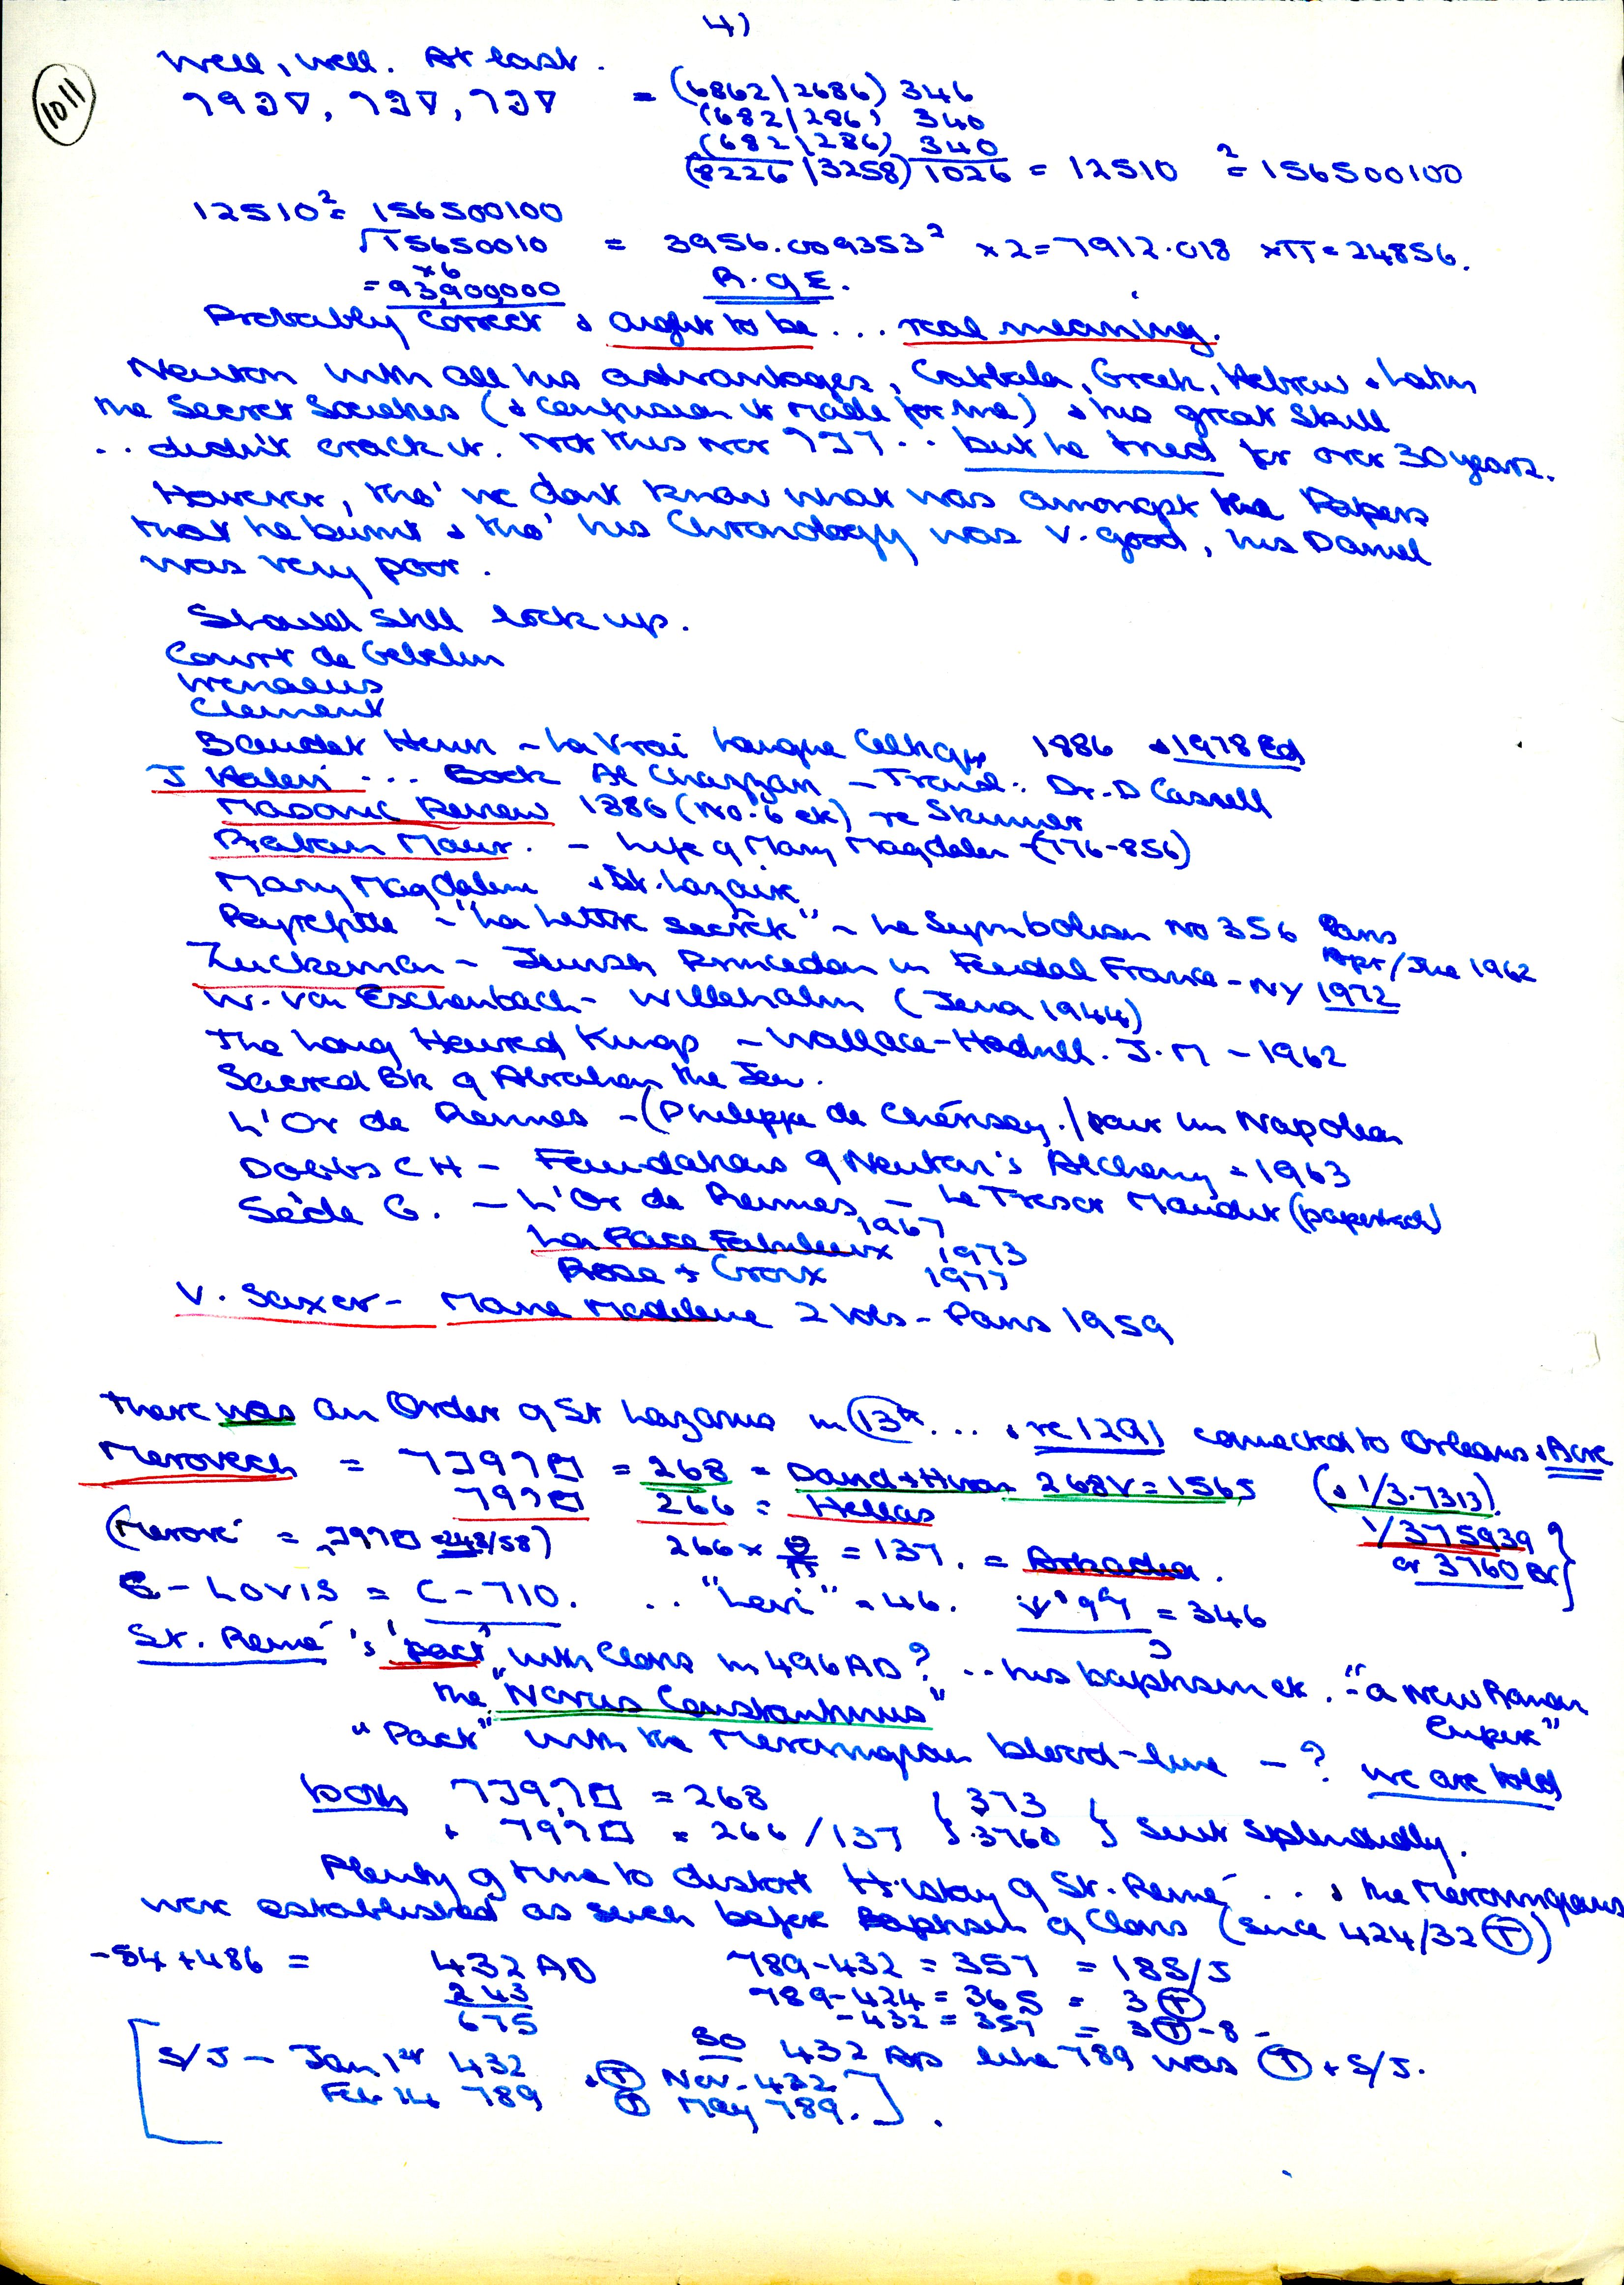 4)
1011
Well, well. At last.
= (6862/2686) 346
(682/286) 340
(682/286) 340
(8226/3258) 1026 = 12510 ² = 156500100
12510² = 156500100
√15650010 = 3956.009353² x 2 = 7912.018 x π = 24856.
x6
= 93,900,000 R. of E.
Probably correct & ought to be ... real meaning.
Newton with all his advantages, Cabbala, Greek, Hebrew & Latin
the Secret Societies (& confusion it made for me) & his great skill
.. didn't crack it. Not this nor .. but he tried for over 30 years.
However, tho' we dont know what was amongst the Papers
that he burnt & tho' his Chronology was v. good, his Daniel
was very poor.
Should still look up.
Court de Gebelin
Irenaeus
Clement
Boudet Henri - La Vrai Langue Celtique 1886 & 1978 Ed
J Halevi ... Book Al Chazzari - Transl: Dr. D Cassell
Masonic Review 1886 (No. 6 etc) re Skinner
Raban Maur. - Life of Mary Magdalen - (776-856)
Mary Magdalene & St. Lazaire
Peyrefitte - "La Lettre Secrète" - Le Symbolisme No 356 Paris
Apr/Jne 1962
Zuckerman - Jewish Princedom in Feudal France - NY 1972
W. Von Eschenbach - Willehalm (Jena 1944)
The Long Haired Kings - Wallace-Hadrill. J.M - 1962
Sacred Bk of Abraham the Jew.
L'Or de Rennes - (Philippe de Chérisey./pour un Napoleon
Dobbs CH - Foundations of Newton's Alchemy = 1963
Sède G. - L'Or de Rennes - Le Tresor Maudit (paperback)
1967
La Race Fabuleux 1973
Rose + Croix 1977
V. Saxer - Marie Madeleine 2 Vols - Paris 1959
There was an Order of St Lazarus in 13th ... & re 1291 connected to Orleans & Acre
Merovech = = 268 = David + Hiram 268V = 1565 (& 1/3.7313)
266 = Hellas 1/375939 ?
(Merove = = 248/58) 266 x = 137. = Arkadia. or 3760 BC}
C - LOVIS = C - 710. .. "Levi" = 46. = 346
St. Remé's 'pact' with Clovis in 496 AD? .. his baptism etc. - "a New Roman
the "Novus Constantinus" Empire"
"Pact" with the Merovingian blood-line - ? we are told
both = 268 { 373 }
+ = 266/137 { 3760 } suit splendidly.
Plenty of time to distort History of St. Remé ... & the Merovingians
were established as such before Baptism of Clovis (since 424/32 T)
-54 + 486 = 432 AD 789 - 432 = 357 = 18 S/J
243 789 - 424 = 365 = 3 T
675 - 432 = 357 = 3 T - 8 -
So 432 AD like 789 was T + S/J.
[S/J - Jan 1st 432 & T Nov. 432
Feb 14 789 T May 789.].